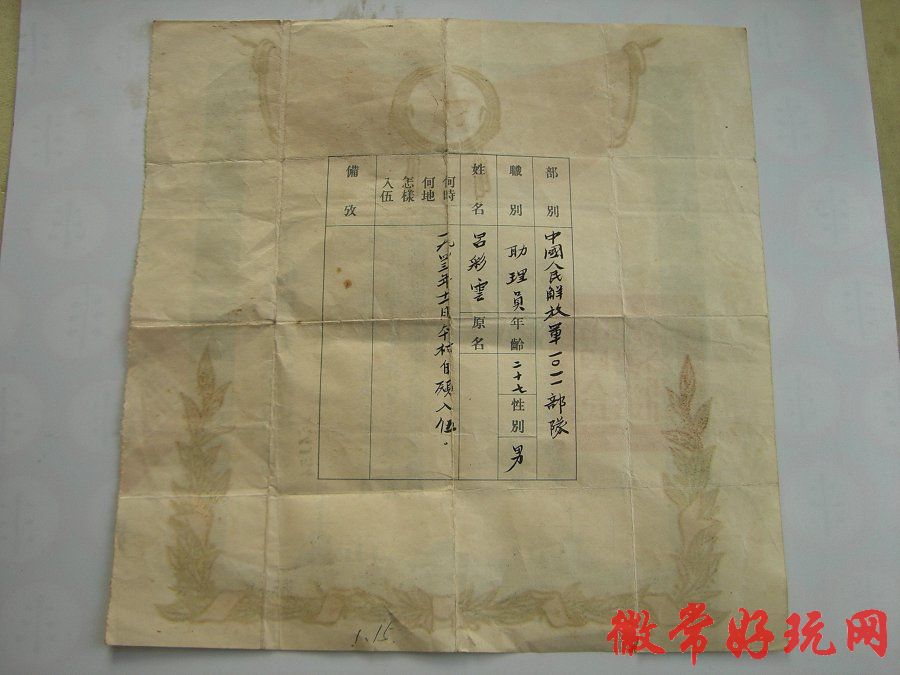 部別 中國人民解放軍一〇一一部隊
職別 助理員 年齡 二十七 性別 男
姓名 呂彩雲 原名
何時何地怎樣入伍 一九四三年十一月本村自願入伍。
備攷
1.15.
徽常好玩网